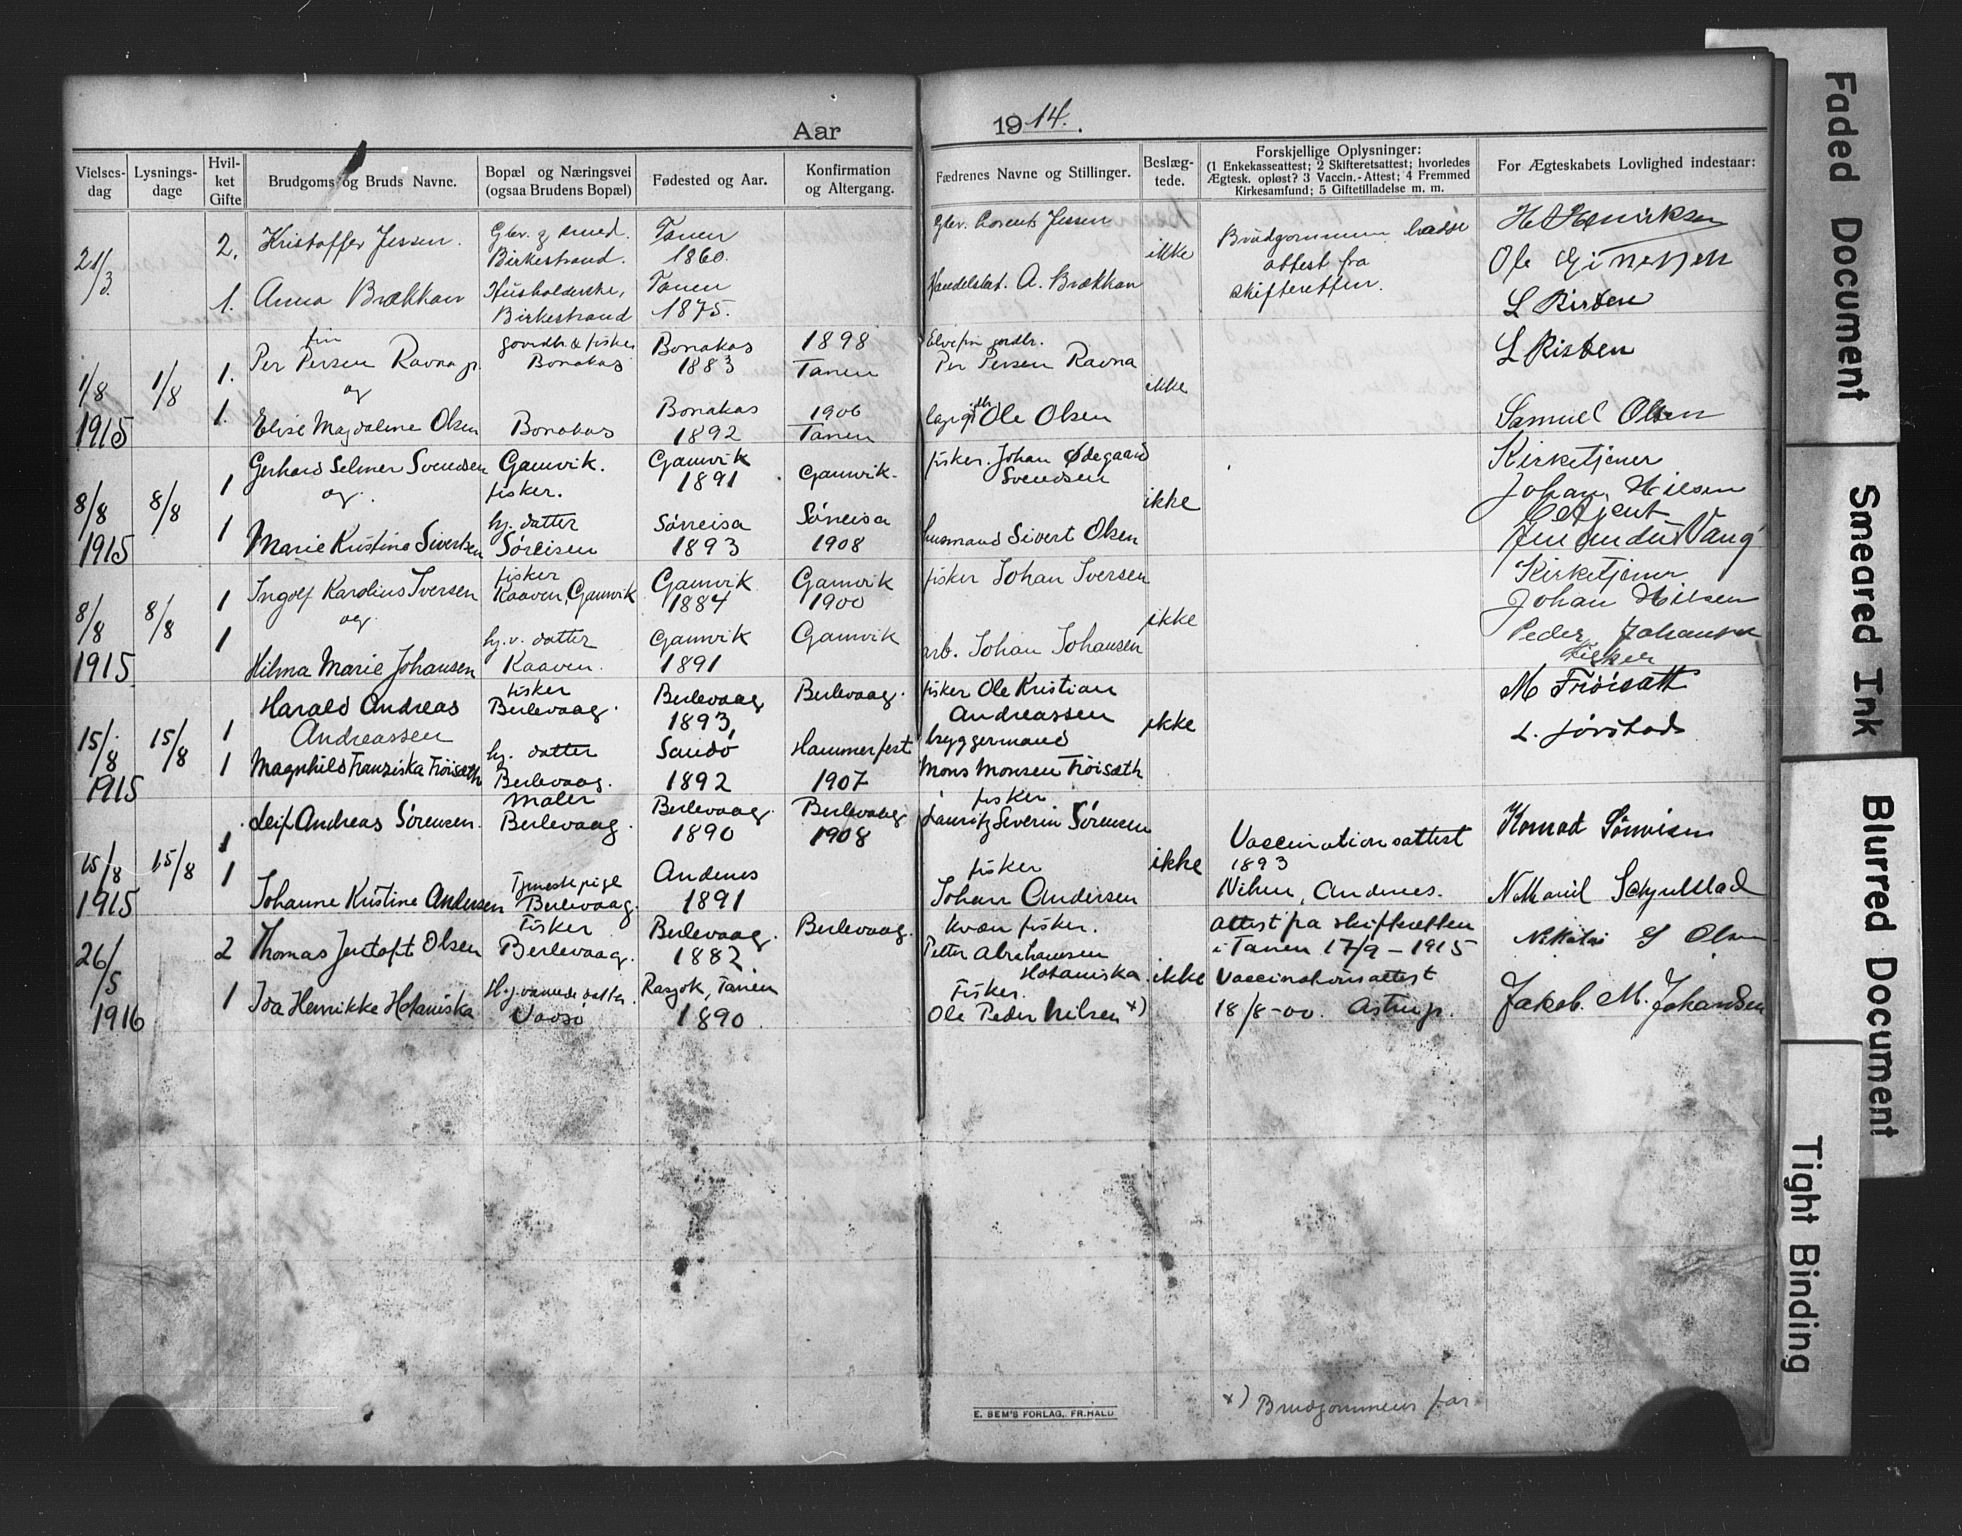 Aar 1914.
Vielses-dag
Lysnings-dage
Hvil-ket Gifte
Brudgoms og Bruds Navne.
Bopæl og Næringsvei (ogsaa Brudens Bopæl)
Fødested og Aar.
Konfirmation og Altergang.
Fædrenes Navne og Stillinger.
Beslæg-tede.
Forskjellige Oplysninger: (1 Enkekasseattest; 2 Skifteretsattest; hvorledes Ægtesk. opløst? 3 Vaccin.-Attest; 4 Fremmed Kirkesamfund; 5 Giftetilladelse m. m.
For Ægteskabets Lovlighed indestaar:
21/3
2. Kristoffer Jessen. Gbr. & smed. Birkestrand. Tanen 1860. Gbr. Lorents Jessen
ikke
Brudgommen hadde attest fra skifteretten.
H Henriksen
1. Anna Brækkan Husholderske, Birkestrand Tanen 1875. Handelsbet. A. Brækkan
L Risten
1/8 1915 1/8
1. fin Per Persen Ravna jr gaardbr & fisker Bonakas Bonakas 1883 1898 Tanen Elvefin gardbr. Per Persen Ravna
og
ikke
L Risten
1. Elise Magdalene Olsen Bonakas Bonakas 1892 1906 Tanen Ole Olsen
Samuel Olsen
8/8 1915 8/8
1 Gerhard Selmer Svendsen Gamvik. fisker. Gamvik 1891 Gamvik. fisker. Johan Ødegaard Svendsen
og.
ikke
Kirketjener Johan Nilsen
1 Marie Kristine Sivertsen hj. datter Sørreisen Sørreisa 1893 Sørreisa 1908 husmand Sivert Olsen
Betjent Vang
8/8 1915 8/8
1 Ingolf Karolius Iversen fisker Kaaven, Gamvik Gamvik 1884 Gamvik 1900 fisker Johan Iversen
og.
ikke
Kirketjener Johan Nilsen
1 Hilma Marie Johansen hj. v. datter Kaaven. Gamvik 1891 Gamvik arb. Johan Johansen
Peder Johansen Fisker
15/8 1915 15/8
1 Harald Andreas Andreassen fisker Berlevaag. Berlevaag 1893, Berlevaag. fisker Ole Kristian Andreassen
ikke
M Frøisæth
1 Magnhild Franziska Frøisæth hj. datter Berlevaag. Sandø 1892 Hammerfest 1907 bryggermand Mons Monsen Frøisæth
L. Jørstad
15/8 1915 15/8
1 Leif Andreas Sörensen. Maler Berlevaag. Berlevaag. 1890 Berlevaag 1908 fisker. Lauritz Severin Sörensen
ikke
Vaccinationsattest 1893
Konrad
1 Johanne Kristine Andersen Tjenestepige Berlevaag. Andenes 1891 fisker Johan Andersen
Andenes.
26/5 1916
2 Thomas Jentoft Olsen Fisker Berlevaag. Berlevaag. 1882 Berlevaag. kvæn fisker. Petter Abrahamsen Hotaniska
ikke
Attest fra skifteretten i Tanen 17/9 – 1915
Olsen
1 Ida Henrikke Hotaniska Hj.værende datter. Vadsø Rasjok, Tanen 1890. Fisker. Ole Peder Nilsen x)
Vaccinationsattest 18/8-00. Astrup.
Jakob. M. Johansen
x) Brudgommens far
E. SEM'S FORLAG, FR.HALD
Faded Document
Smeared Ink
Blurred Document
Tight Binding